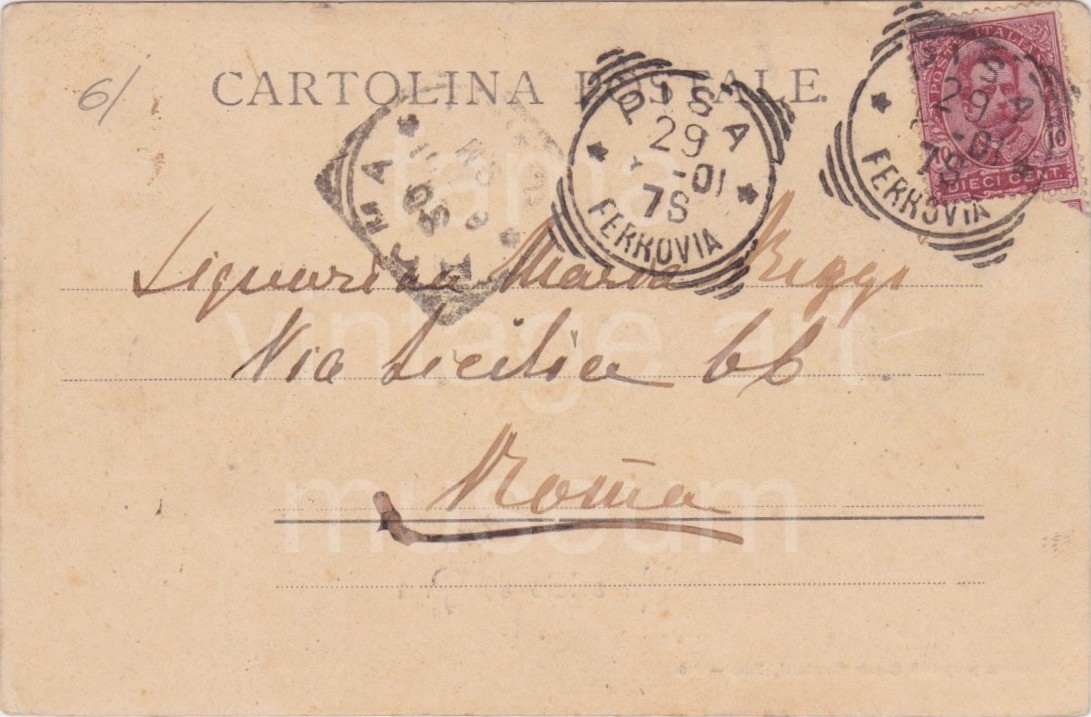 6/
CARTOLINA POSTALE.
PISA
29
-01
7S
FERROVIA
PISA
29
-01
7S
FERROVIA
POSTE ITALIANE
DIECI CENT.
Signorina Maria Riggi
Via Sicilia 66
Roma
tama
vintage art
museum